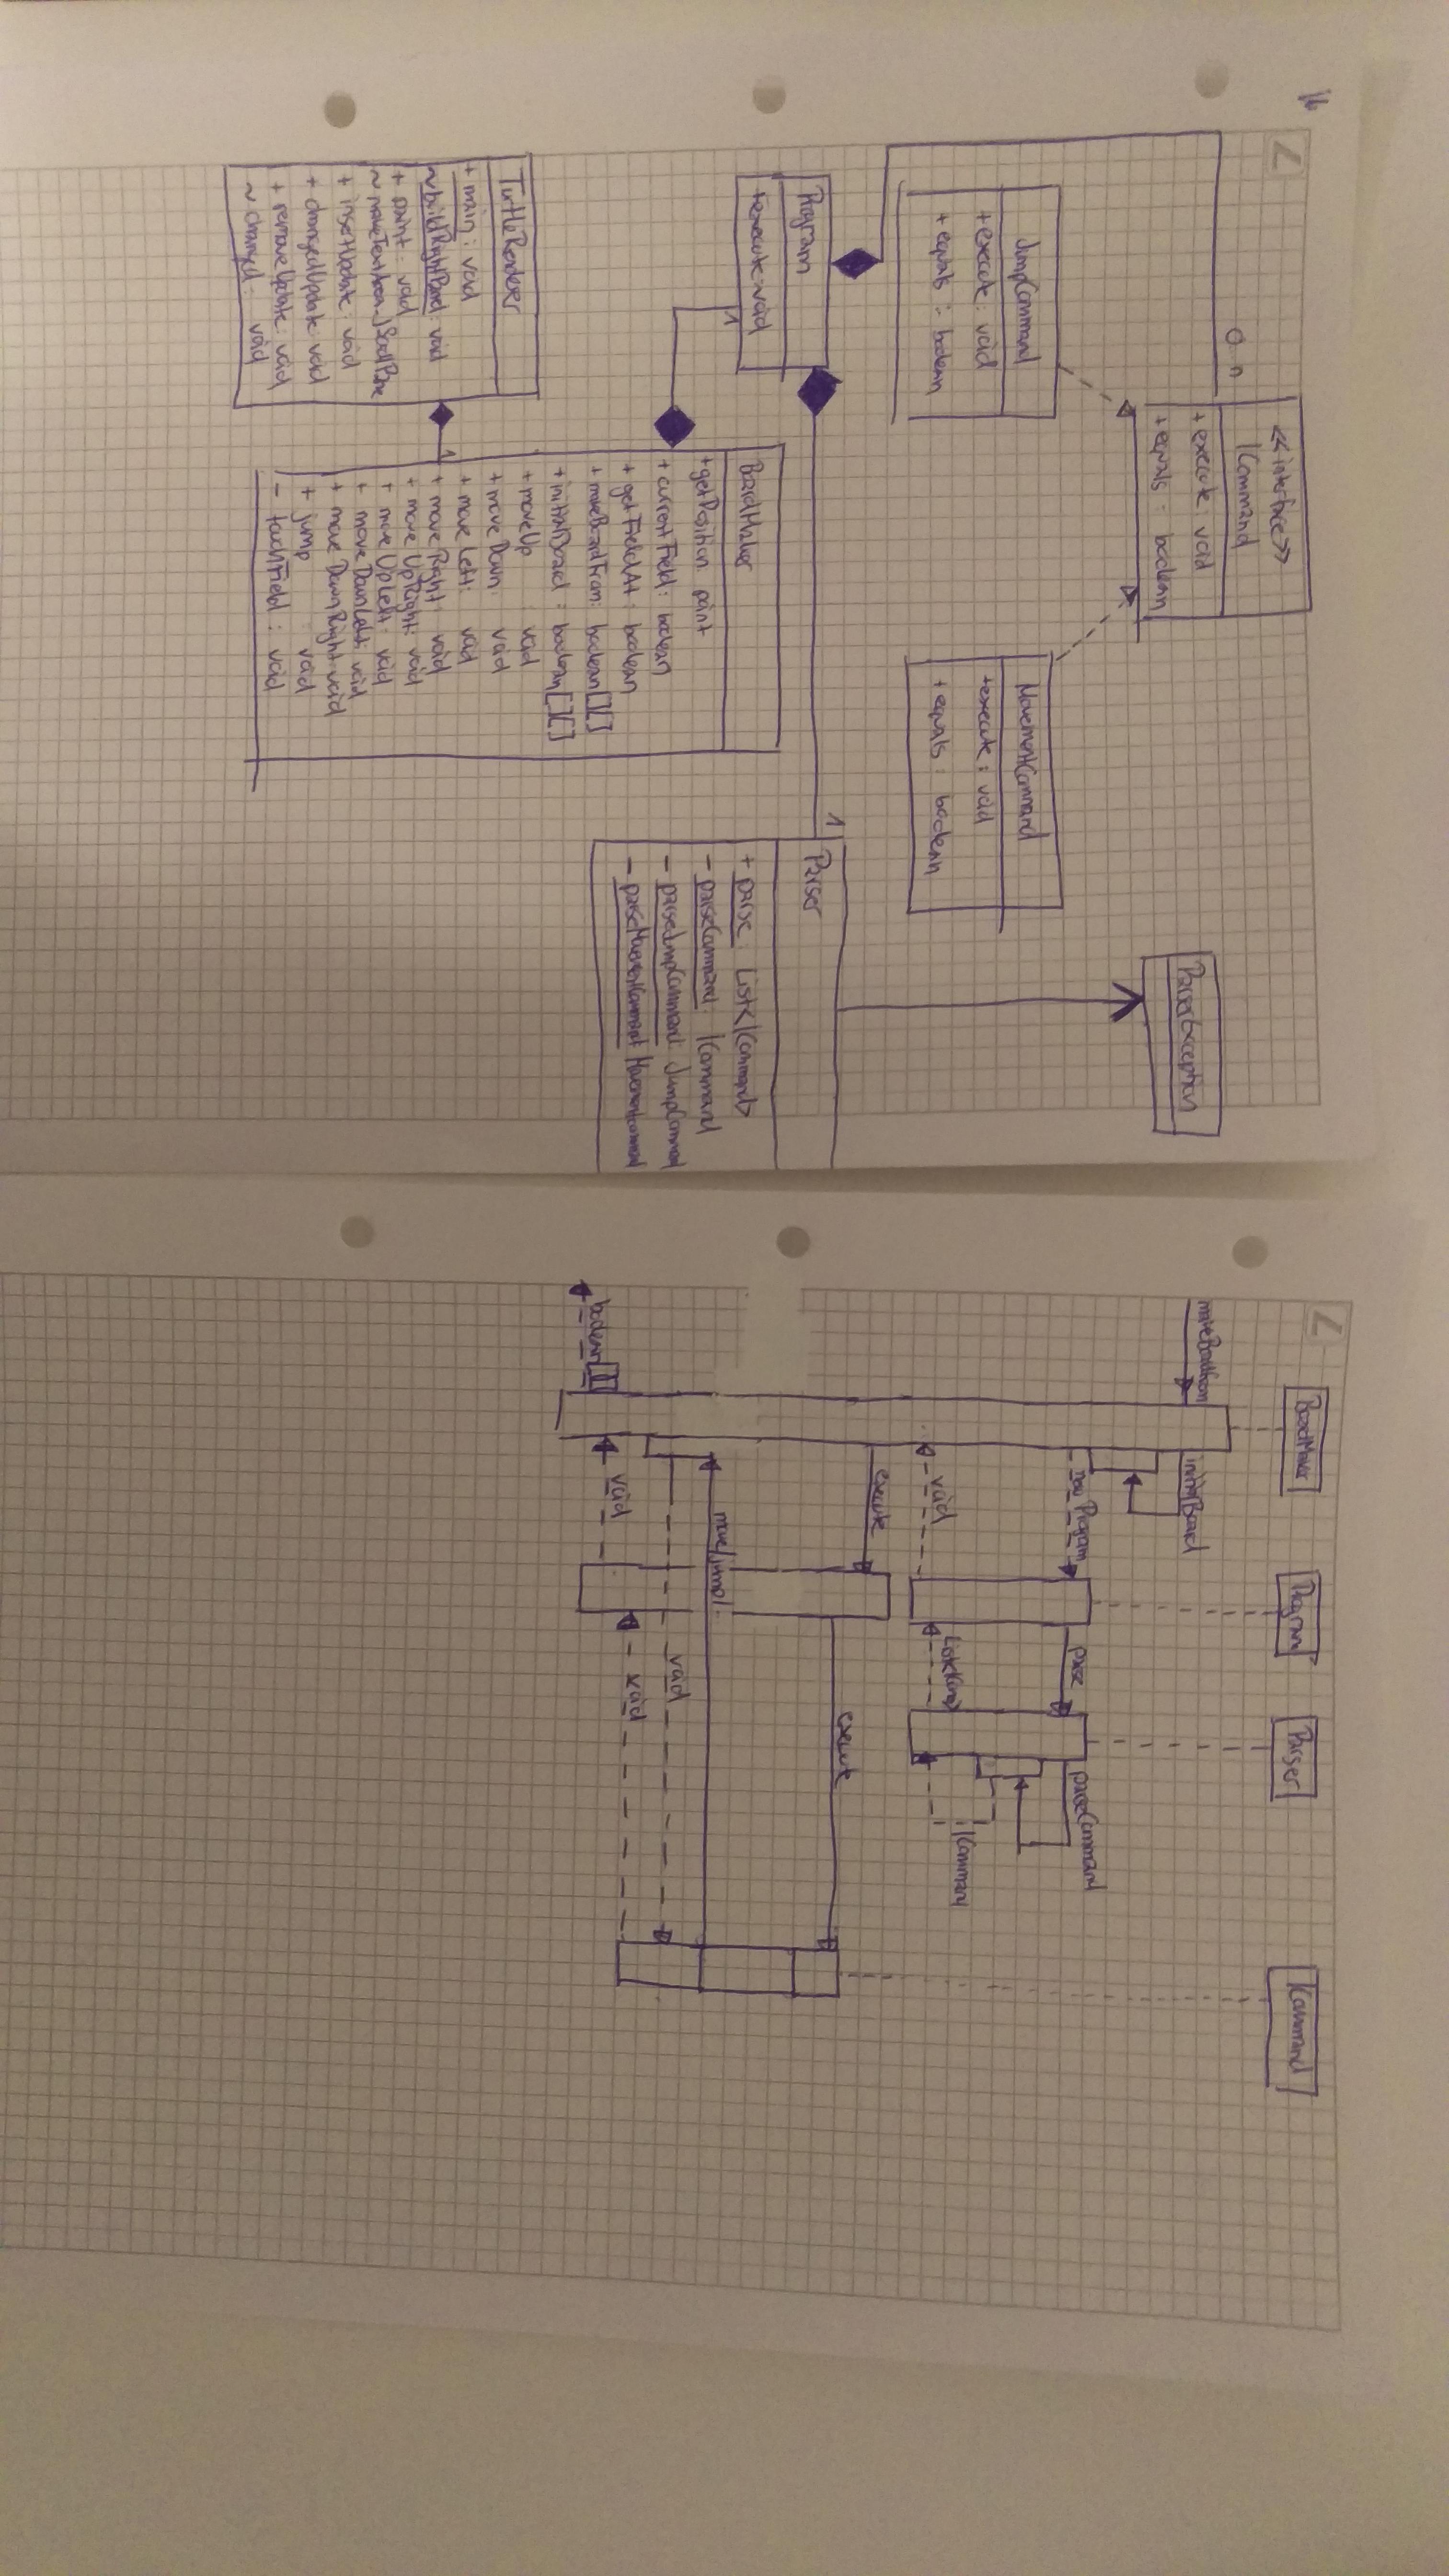 16
Z
<<interface>>
ICommand
+ execute : void
+ equals : boolean
0..n
JumpCommand
+ execute : void
+ equals : boolean
MovementCommand
+ execute : void
+ equals : boolean
ParserException
Program
+ execute : void
1
1
Parser
+ parse : List<ICommand>
- parseCommand : ICommand
- parseJmpCommand : JumpCommand
- parseMovementCommand MovementCommand
BoardMaker
+ getPosition : point
+ currentField : boolean
+ getFieldAt : boolean
+ makeBoardFrom : boolean[][]
+ initialBoard : boolean[][]
+ moveUp : void
+ moveDown : void
+ moveLeft : void
+ moveRight : void
+ moveUpRight : void
+ moveUpLeft : void
+ moveDownLeft : void
+ moveDownRight : void
+ jump : void
- touchField : void
1
TurtleRenderer
+ main : void
~ buildRightPanel : void
+ paint : void
~ makeTextArea : JScrollPane
+ insertUpdate : void
+ changedUpdate : void
+ removeUpdate : void
~ changed : void
Z
BoardMaker
Program
Parser
ICommand
makeBoardFrom
initialBoard
new Program
parse
parseCommand
ICommand
void
execute
execute
move/jump
void
void
void
boolean[][]